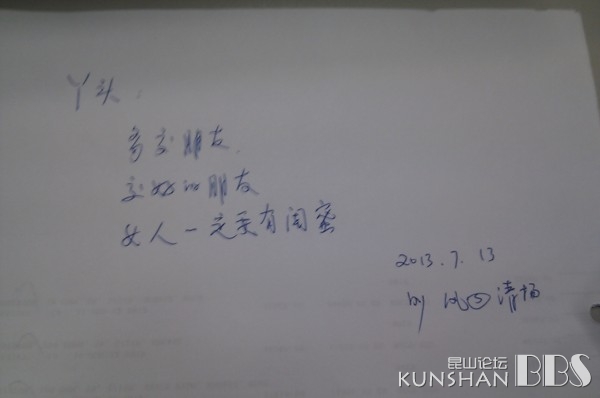 丫头,
多交朋友,
交好的朋友
女人一定要有闺蜜
2013.7.13
by 清扬
昆山论坛
KUNSHAN BBS